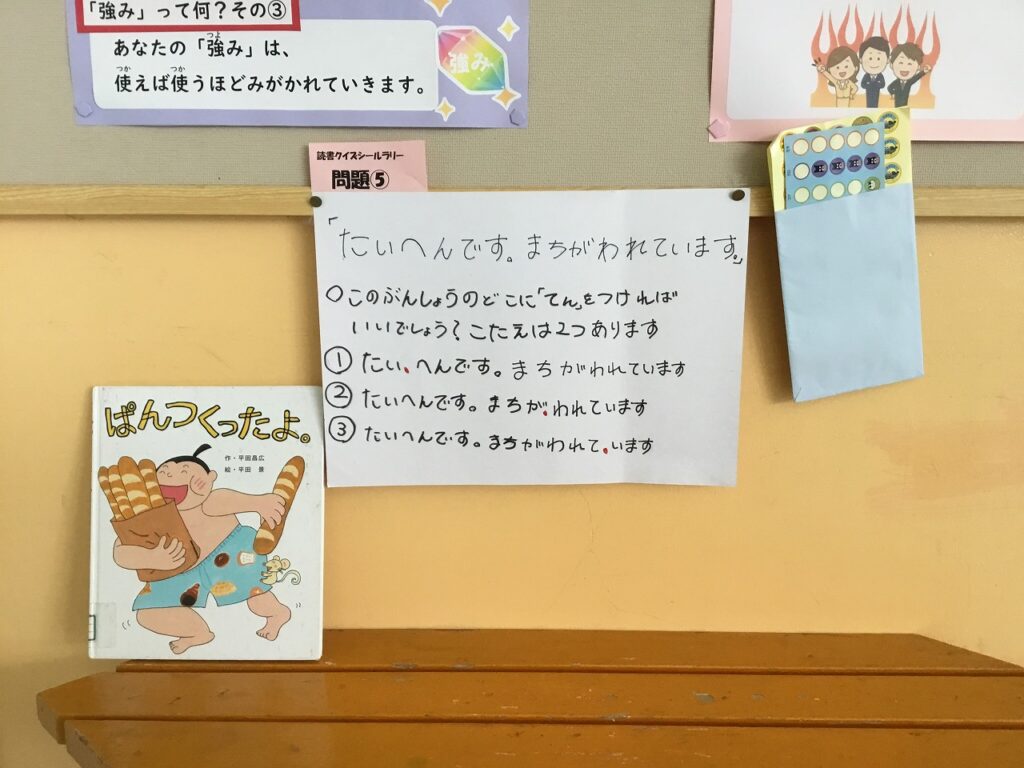 「強み」って何？その③
あなたの「強み」は、
使えば使うほどみがかれていきます。
強み
読書クイズシールラリー
問題⑤
「たいへんです。まちがわれています。」
○このぶんしょうのどこに「てん」をつければ
いいでしょう？こたえは2つあります
① たい、へんです。まちがわれています
② たいへんです。まちが、われています
③ たいへんです。まちがわれて、います
ぱんつくったよ。
作・平田昌広
絵・平田 景